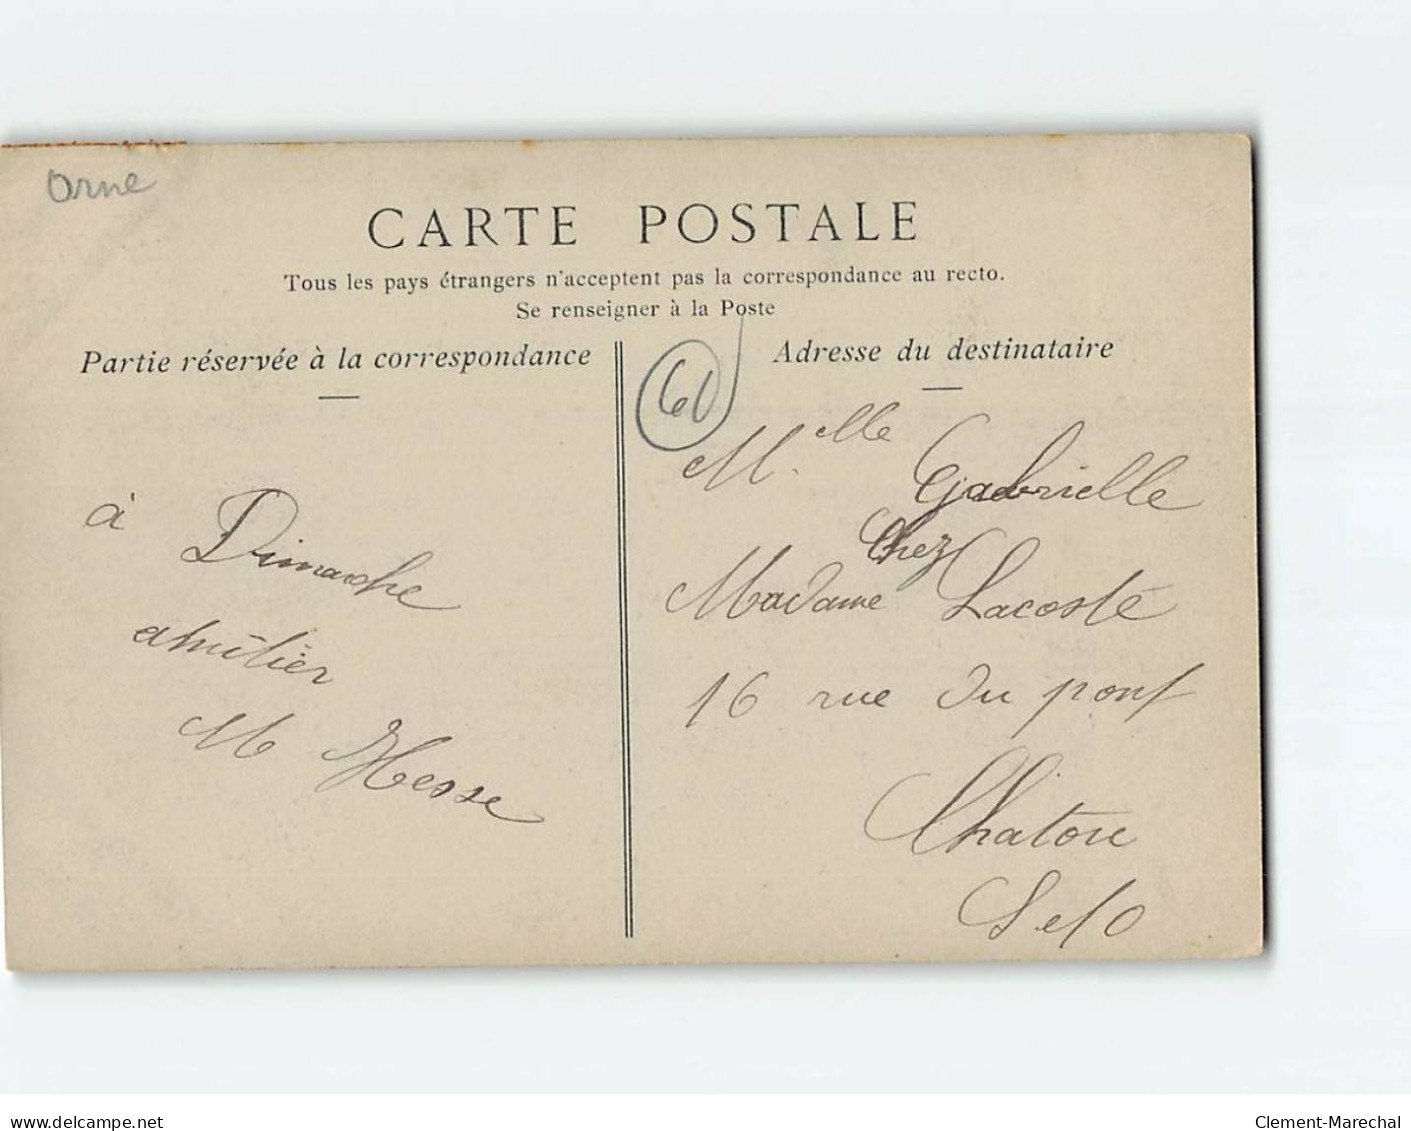 Orne
CARTE POSTALE
Tous les pays étrangers n'acceptent pas la correspondance au recto.
Se renseigner à la Poste
Partie réservée à la correspondance
Adresse du destinataire
à
Dimanche
M Hesse
Melle Gabrielle
Chez
Madame Lacoste
16 rue du pont
Chatou
S et O
www.delcampe.net
Clement-Marechal